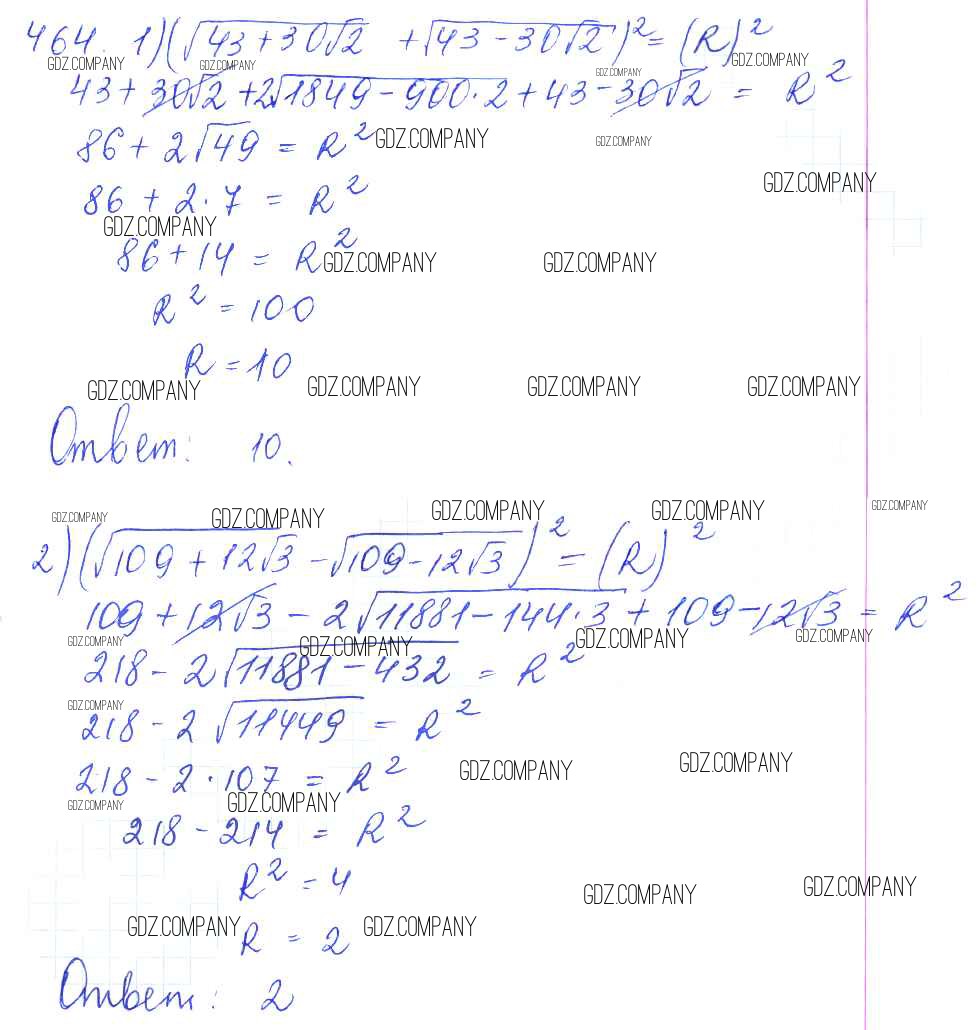 464. 1) (√(43 + 30√2) + √(43 - 30√2))² = (R)²
GDZ.COMPANY GDZ.COMPANY GDZ.COMPANY GDZ.COMPANY
43 + 30√2 + 2√(1849 - 900·2) + 43 - 30√2 = R²
86 + 2√49 = R²
GDZ.COMPANY GDZ.COMPANY
GDZ.COMPANY
86 + 2·7 = R²
GDZ.COMPANY
86 + 14 = R²
GDZ.COMPANY GDZ.COMPANY
R² = 100
R = 10
GDZ.COMPANY GDZ.COMPANY GDZ.COMPANY GDZ.COMPANY
Ответ: 10.
GDZ.COMPANY GDZ.COMPANY GDZ.COMPANY GDZ.COMPANY GDZ.COMPANY
2) (√(109 + 12√3) - √(109 - 12√3))² = (R)²
109 + 12√3 - 2√(11881 - 144·3) + 109 - 12√3 = R²
GDZ.COMPANY GDZ.COMPANY GDZ.COMPANY GDZ.COMPANY
218 - 2√(11881 - 432) = R²
GDZ.COMPANY
218 - 2√11449 = R²
218 - 2·107 = R²
GDZ.COMPANY GDZ.COMPANY
GDZ.COMPANY GDZ.COMPANY
218 - 214 = R²
R² = 4
GDZ.COMPANY GDZ.COMPANY
R = 2
GDZ.COMPANY GDZ.COMPANY
Ответ: 2